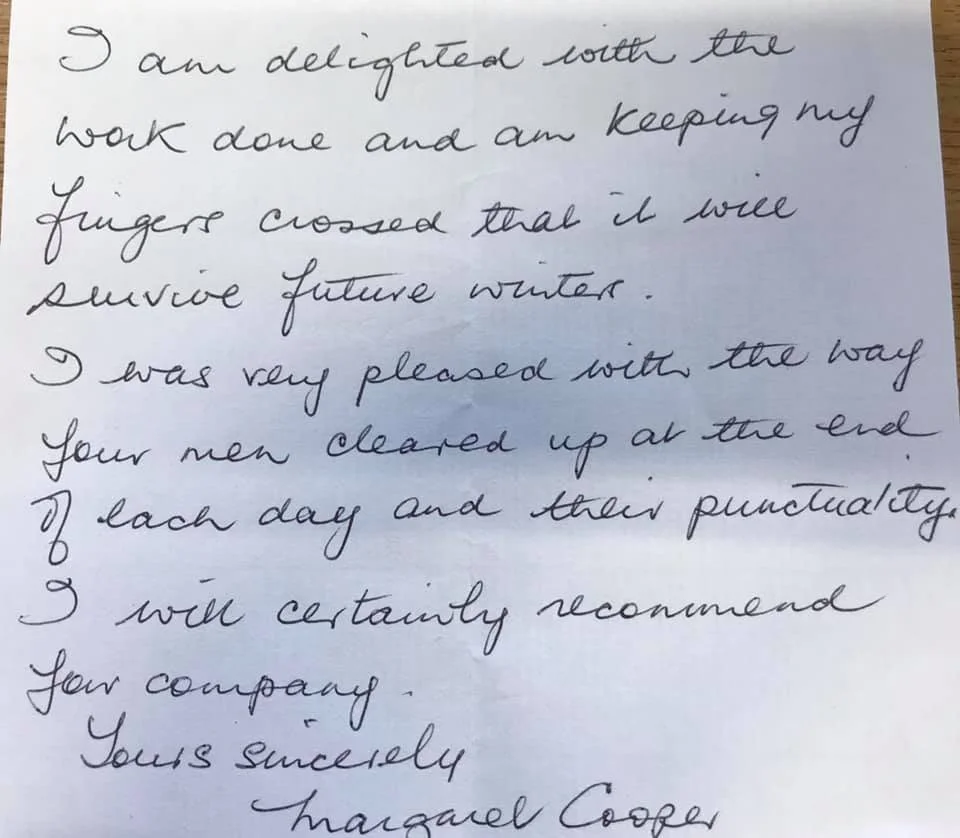 I am delighted with the
work done and am keeping my
fingers crossed that it will
survive future winters.
I was very pleased with the way
your men cleared up at the end
of each day and their punctuality.
I will certainly recommend
your company.
Yours sincerely
Margaret Cooper